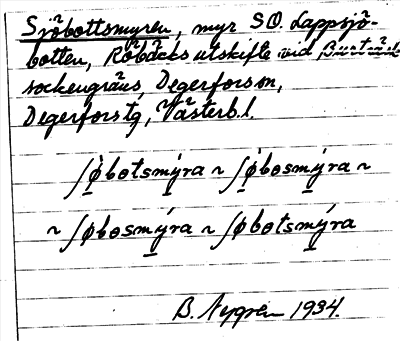 Sjöbottsmyren, myr SO. Lappsjö-
botten, Röbäcks utskifte vid
sockengräns, Degerfors sn,
Degerfors tg, Västerb.l.
ʃøbotsmýra ~ ʃøbosmýra ~
~ ʃøbosmýra ~ ʃøbotsmýra
B. Nygren 1934.